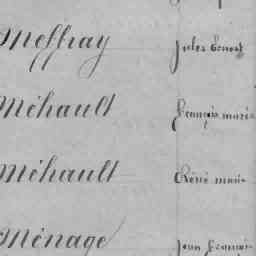 Meffray Jules Ernest
Méhault François marie
Méhault Réné marie
Ménage Jean François